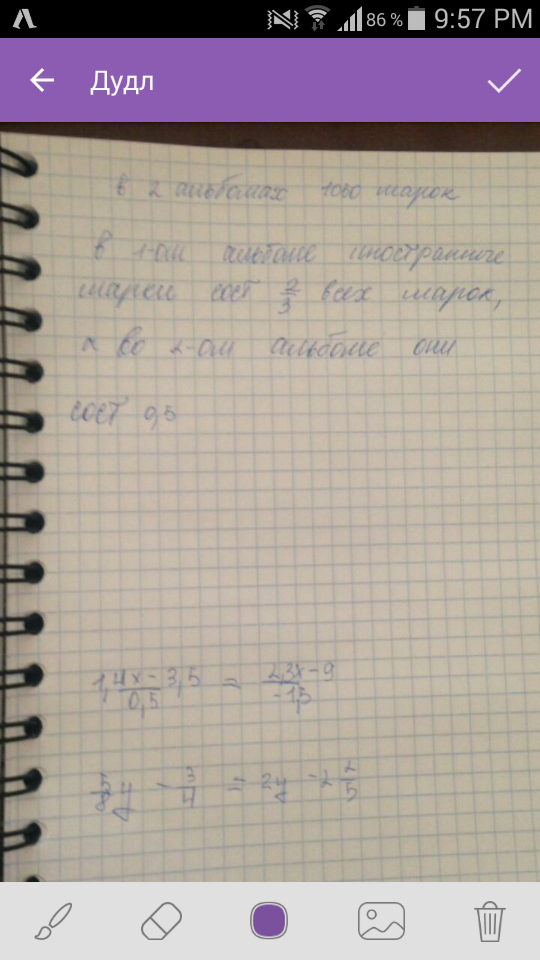 86 % 9:57 PM
Дудл
в 2 альбомах 1060 марок
в 1-ом альбоме иностранные
марки сост 2/3 всех марок,
а во 2-ом альбоме они
сост 0,5
(1,4x - 3,5)/0,5 = (2,3x - 9)/-1,5
5/8 y - 3/4 = 2y - 2